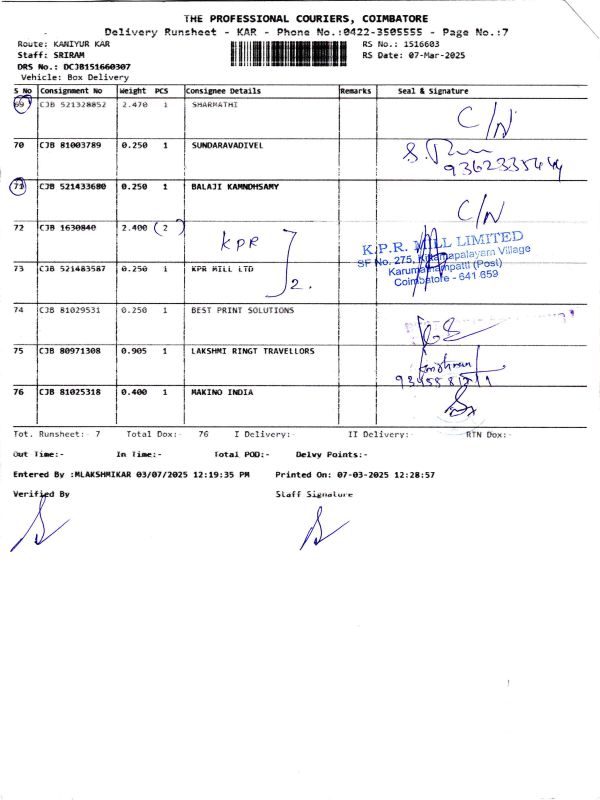 THE PROFESSIONAL COURIERS, COIMBATORE
Delivery Runsheet - KAR - Phone No.:0422-3505555 - Page No.:7
Route: KANIYUR KAR
RS No.: 1516603
Staff: SRIRAM
RS Date: 07-Mar-2025
DRS No.: DCJB151660307
Vehicle: Box Delivery
S No Consignment No Weight PCS Consignee Details Remarks Seal & Signature
69 CJB 521328852 2.470 1 SHARMATHI C/N
70 CJB 81003789 0.250 1 SUNDARAVADIVEL
71 CJB 521433680 0.250 1 BALAJI KAMNDHSAMY C/N
72 CJB 1630840 2.400 (2) KPR
K.P.R. MILL LIMITED
SF No. 275, Kittampalayam Village
Karumathampatti (Post)
Coimbatore - 641 659
73 CJB 521483587 0.250 1 KPR MILL LTD 2.
74 CJB 81029531 0.250 1 BEST PRINT SOLUTIONS
75 CJB 80971308 0.905 1 LAKSHMI RINGT TRAVELLORS
76 CJB 81025318 0.400 1 MAKINO INDIA
Tot. Runsheet:- 7 Total Dox:- 76 I Delivery:- II Delivery:- RTN Dox:-
Out Time:- In Time:- Total POD:- Delvy Points:-
Entered By :MLAKSHMIKAR 03/07/2025 12:19:35 PM Printed On: 07-03-2025 12:28:57
Verified By Staff Signature